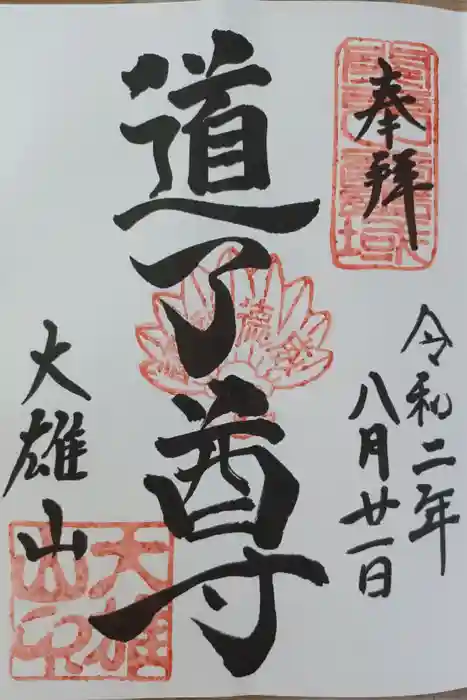 奉拝
令和二年
八月廿一日
道了尊
大雄山
大雄
山印